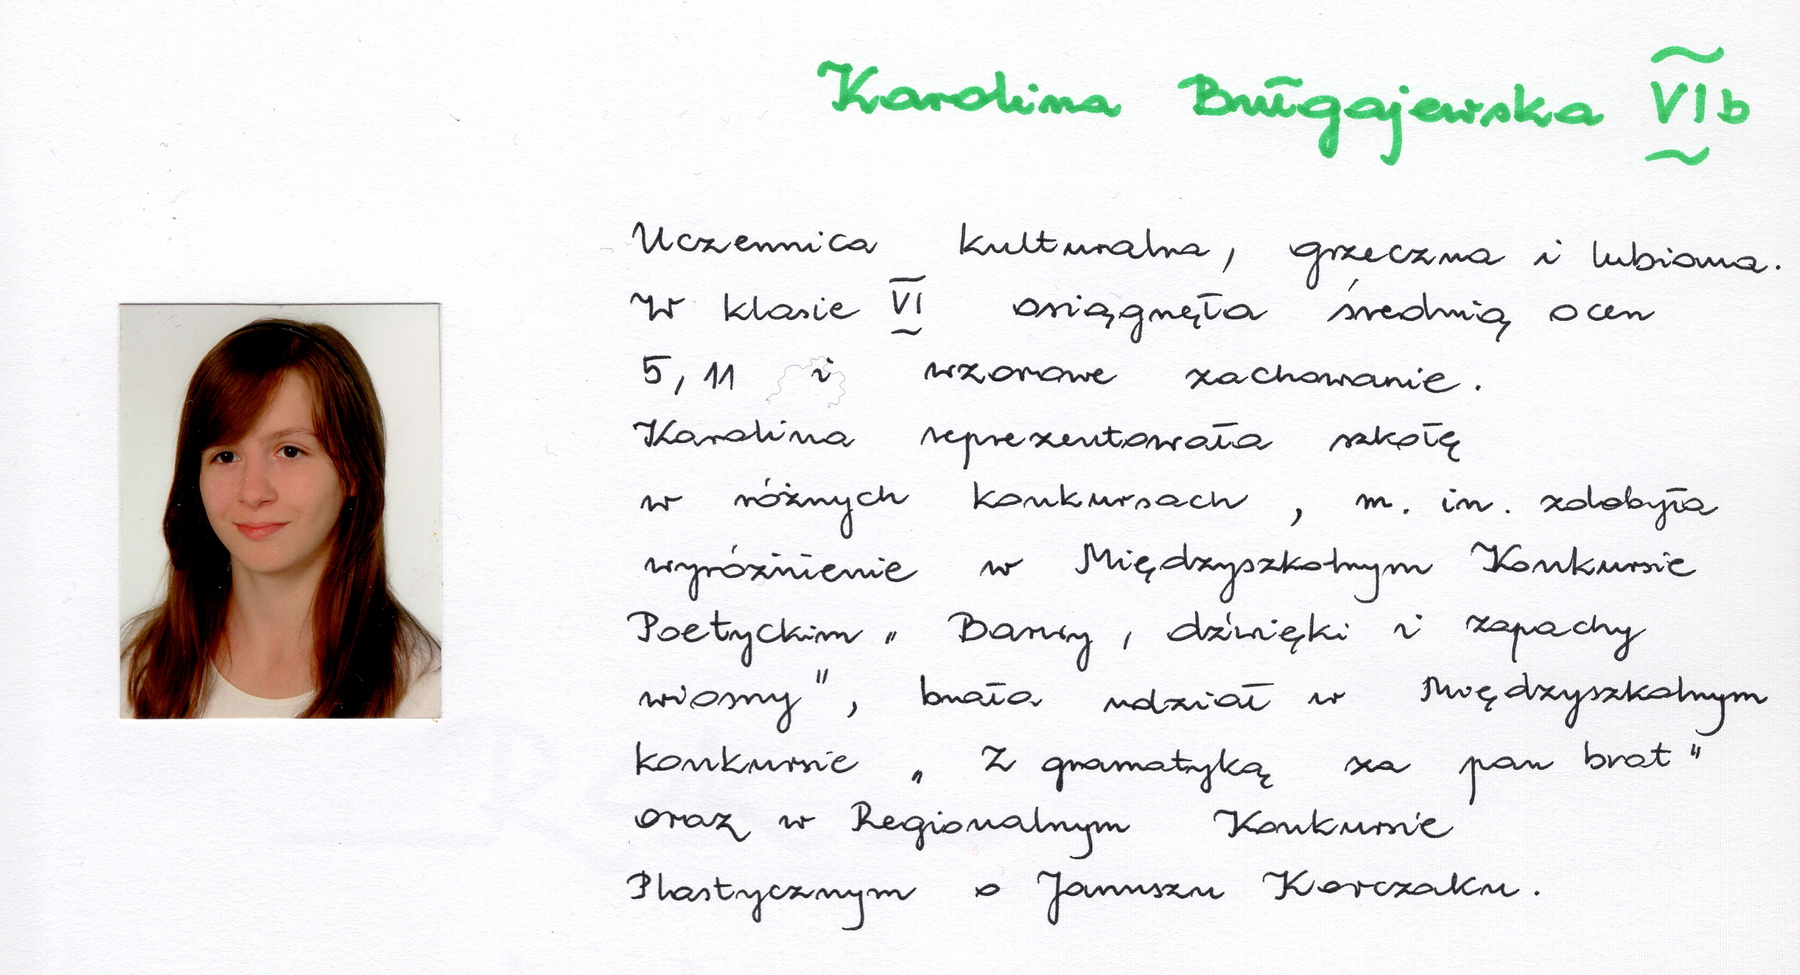 Karolina Bułgajewska VI b
Uczennica kulturalna, grzeczna i lubiana.
W klasie VI osiągnęła średnią ocen
5,11 i wzorowe zachowanie.
Karolina reprezentowała szkołę
w różnych konkursach, m. in. zdobyła
wyróżnienie w Międzyszkolnym Konkursie
Poetyckim „Barwy, dźwięki i zapachy
wiosny”, brała udział w Międzyszkolnym
konkursie „Z gramatyką za pan brat”
oraz w Regionalnym Konkursie
Plastycznym o Januszu Korczaku.